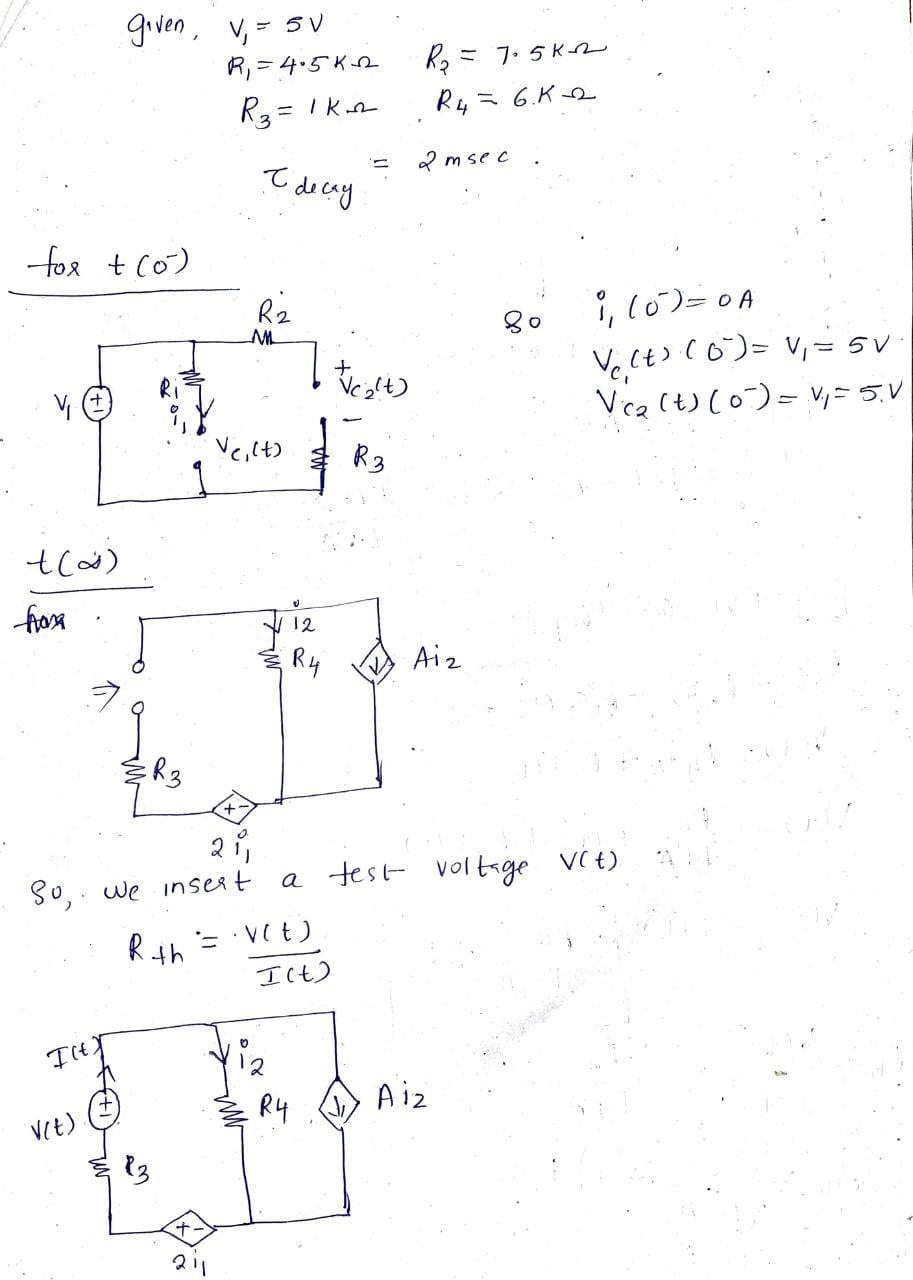 given, V₁ = 5V
R₁ = 4.5KΩ R₂ = 7.5KΩ
R₃ = 1KΩ R₄ = 6.KΩ
τ decay = 2msec.
for t(0⁻)
R₂
V₁ + R₁ i₁ + Vc₂(t) -
Vc₁(t) R₃
So i₁(0⁻) = 0A
Vc₁(t)(0⁻) = V₁ = 5V
Vc₂(t)(0⁻) = V₁ = 5.V
t(∞)
⇒ i₂ R₄ Ai₂
R₃
+ -
2i₁
So, we insert a test voltage V(t)
Rth = V(t)/I(t)
I(t) i₂
V(t) + R₄ Ai₂
R₃
+ -
2i₁